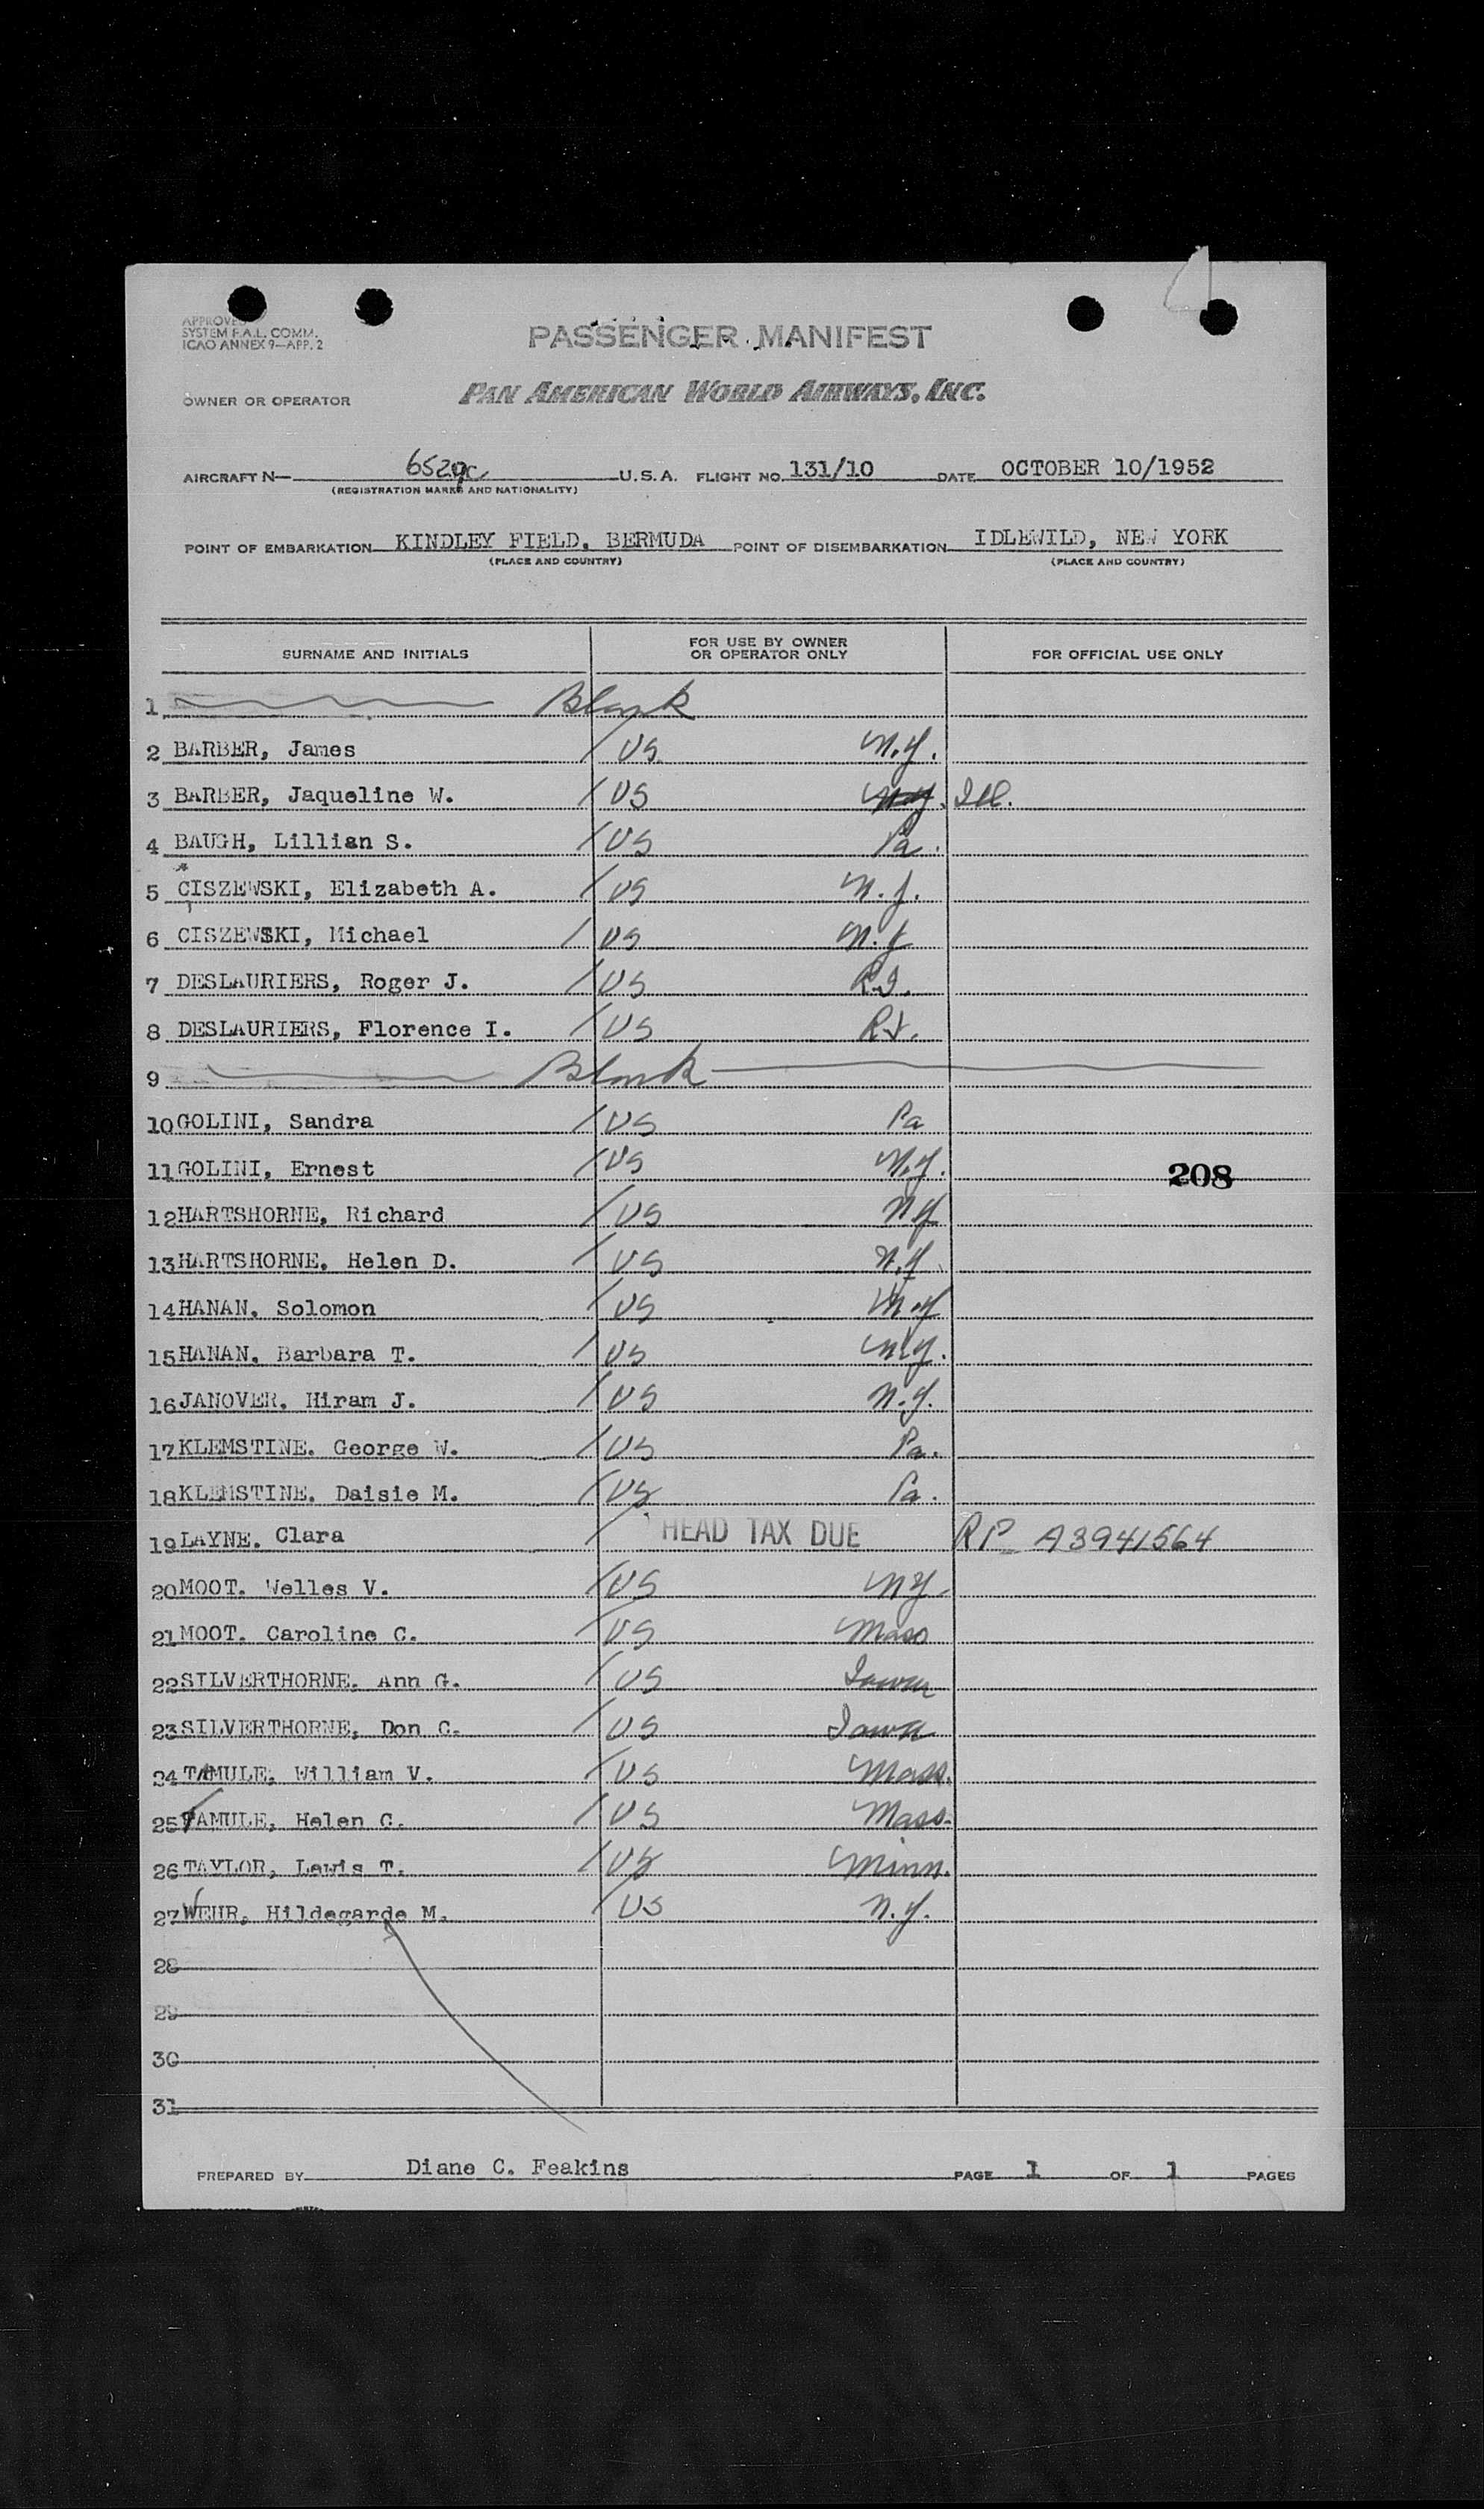 APPROVED
SYSTEM F.A.L. COMM.
ICAO ANNEX 9—APP. 2
PASSENGER MANIFEST
OWNER OR OPERATOR PAN AMERICAN WORLD AIRWAYS, INC.
AIRCRAFT N— 6529C U.S.A. FLIGHT NO. 131/10 DATE OCTOBER 10/1952
(REGISTRATION MARKS AND NATIONALITY)
POINT OF EMBARKATION KINDLEY FIELD, BERMUDA POINT OF DISEMBARKATION IDLEWILD, NEW YORK
(PLACE AND COUNTRY) (PLACE AND COUNTRY)
SURNAME AND INITIALS FOR USE BY OWNER OR OPERATOR ONLY FOR OFFICIAL USE ONLY
1 Blank
2 BARBER, James / US N.Y.
3 BARBER, Jaqueline W. / US N.Y. Ill.
4 BAUGH, Lillian S. / US Pa.
5 CISZEWSKI, Elizabeth A. / US N.J.
6 CISZEWSKI, Michael / US N.J
7 DESLAURIERS, Roger J. / US R.I.
8 DESLAURIERS, Florence I. / US R.I.
9 Blank
10 GOLINI, Sandra / US Pa
11 GOLINI, Ernest / US N.Y. 208
12 HARTSHORNE, Richard / US NY
13 HARTSHORNE, Helen D. / US N.Y
14 HANAN, Solomon / US N.Y
15 HANAN, Barbara T. / US N.Y.
16 JANOVER, Hiram J. / US N.Y.
17 KLEMSTINE. George W. / US Pa.
18 KLEMSTINE. Daisie M. / US Pa.
19 LAYNE. Clara / HEAD TAX DUE RP A3941564
20 MOOT. Welles V. / US NY
21 MOOT. Caroline C. / US Mass
22 SILVERTHORNE. Ann G. / US Iowa
23 SILVERTHORNE, Don C. / US Iowa
24 TAMULE, William V. / US Mass.
25 TAMULE, Helen C. / US Mass.
26 TAYLOR, Lewis T. / US Minn.
27 WEHR, Hildegarde M. / US N.Y.
28
29
30
31
PREPARED BY Diane C. Feakins PAGE 1 OF 1 PAGES